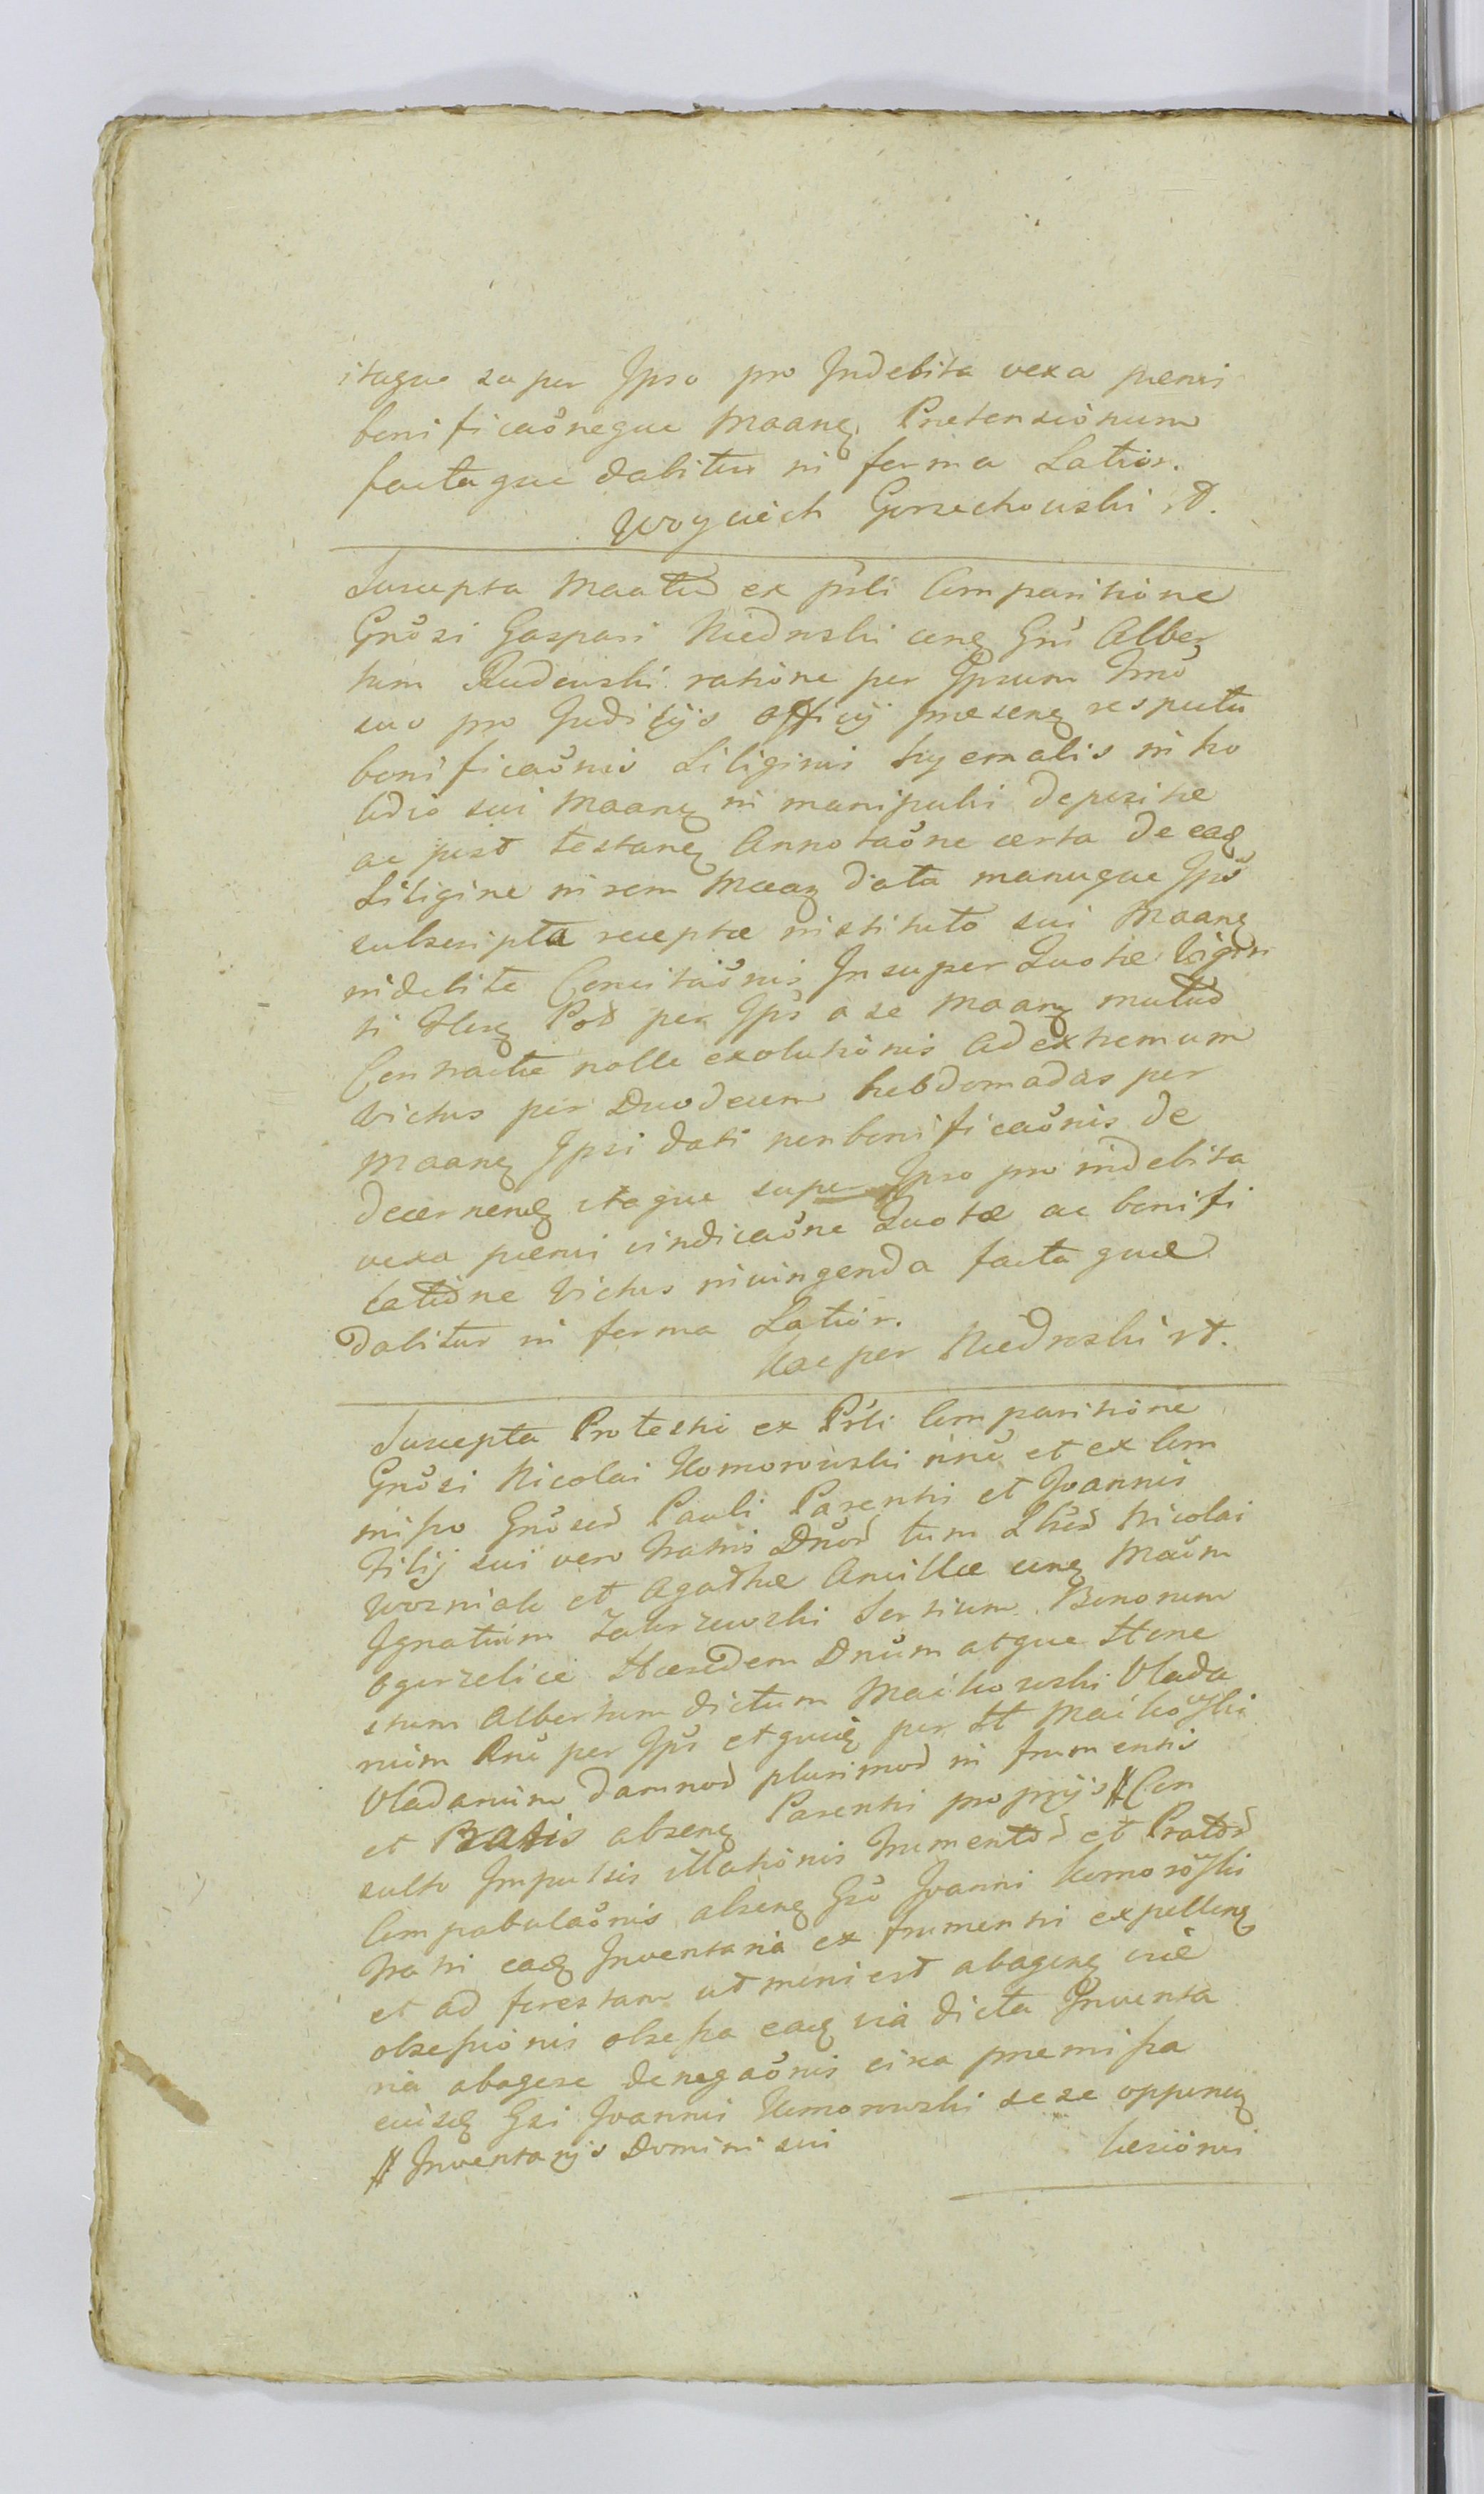 itaque super Ipso pro Indebita vexa pœnis
bonificaõneque Maanꝗ Prætensionum
factaque dabitur in forma Latior.
Woyciech Gorzechowski st.
Suscepta Maatio ex prsli Comparitione
Gnõsi Gaspari Niedroski conꝗ Gnũ Alber
tum Rudowski ratione per Ipsum Trno
suo pro Judicijs officij præsenꝗ respectu
bonificaõnis Siliginis hyemalis in ho
rdeo sui Maanꝗ in manipulis depositæ
ac post testanꝗ Annotaõne certa de eadꝗ
Siligine in rem Maanꝗ data manuque Ips
subscripta receptæ instituto sui Maanꝗ
indebite Concitaõnis Insuper Quotæ Vigin
ti Flenꝗ Pol per Ips a se Maanꝗ mutuo
Contractæ nolle exolutionis Ad extremum
Victus per Duodecem hebdomadas per
Maanꝗ Ipsi dati non bonificaõnis de
decernenꝗ itaque super Ipso pro indebita
vexa pœnis vindicaõne Quotæ ac bonifi
catiõne Victus iniungenda factaquæ
Dabitur in forma Latior.
Kacper Niedroski st.
Suscepta Protestni ex Prsli Comparitione
Gnõsi Nicolai Komorowski niñe et ex Com
misso Gnõsod Pauli Parentis et Joannis
Filij sui vero Fratris Dnõr tum Lbõr Nicolai
Wozniak et Agathæ Ancillæ conꝗ Maũm
Ignatium Zakrzewski Sortium Bonorum
Ogorzelice Hæredem Dnũm atque Hone
stum Albertum dictum Maikowski Vlada
rium Rnẽ per Ips et quidꝗ per H Maikowski
Vladarium damnod plurimod in frumentis
et Pratis absenꝗ Parentis proprijs # Con
sulto Impulsis illationis Frumentod et Pratod
Compabulaõnis absenꝗ Gsõ Joanni Komorowski
Fratri eadꝗ Inventaria ex frumentis expellenꝗ
et ad forestam ut moris est abagenꝗ viæ
obsessionis obsessa eadꝗ via dicta Inventa
ria abagere denegaõnis circa præmissa
eiusdꝗ Gsi Joannis Komorowski sese opponenꝗ
# Inventarijs Domini sui
læsionis